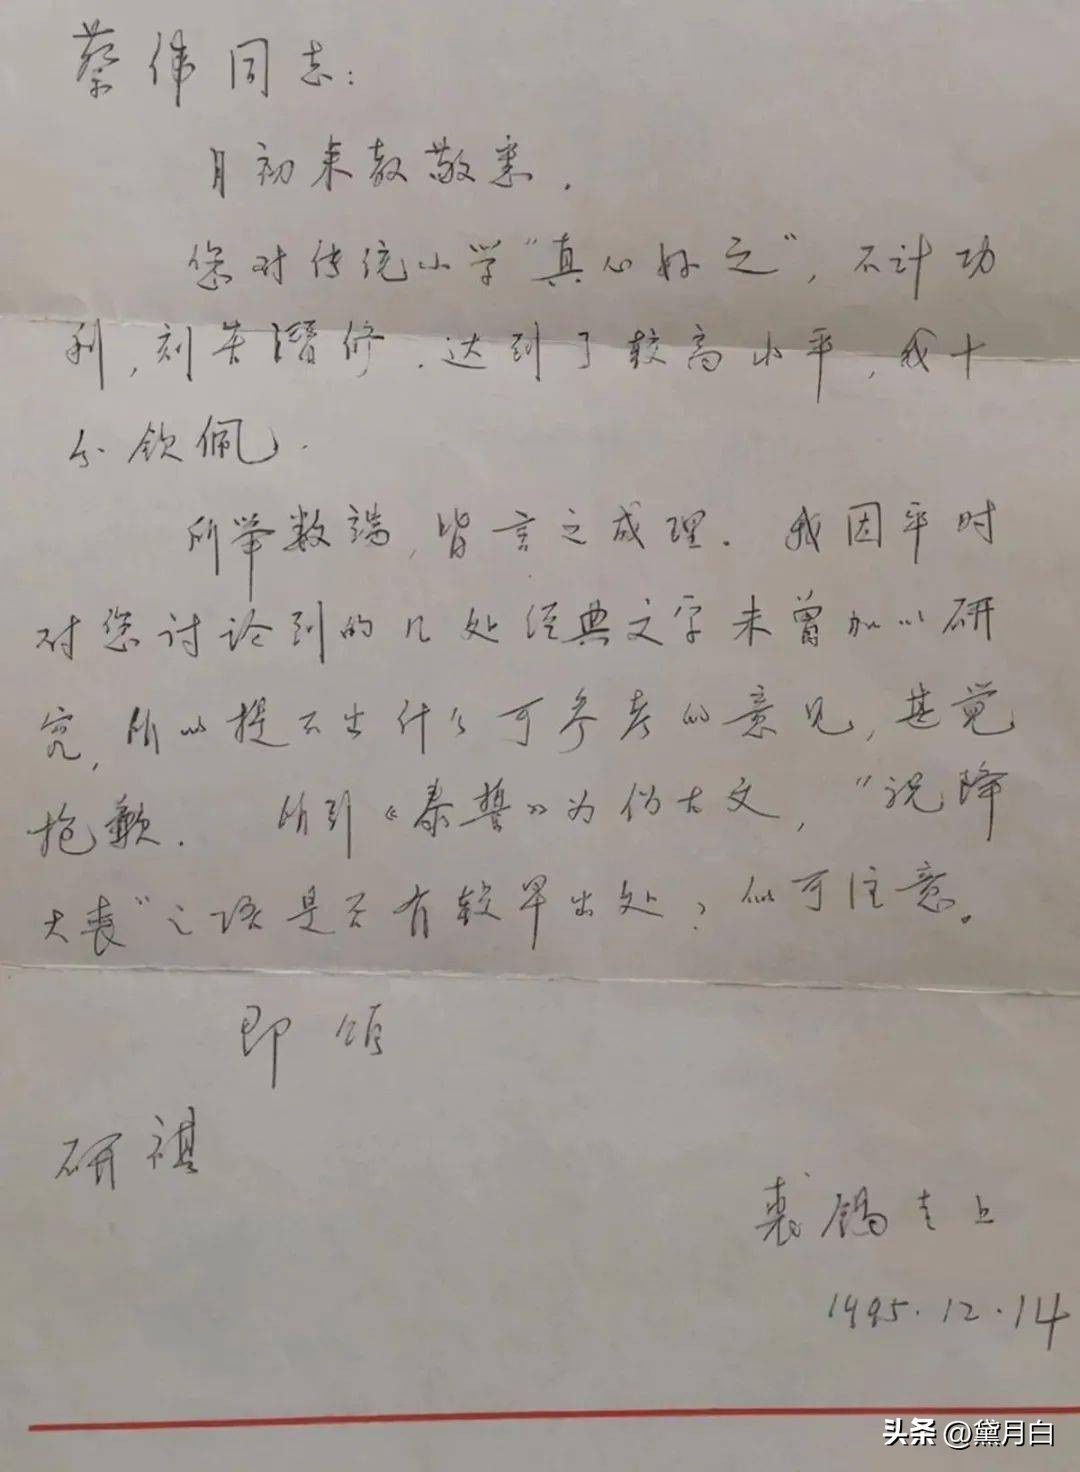 蔡伟同志:
月初来教敬悉.
您对传统小学“真心好之”, 不计功
利, 刻苦潜修. 达到了较高水平, 我十
分钦佩.
所举数端, 皆言之成理. 我因平时
对您讨论到的几处经典文字未曾加以研
究, 所以提不出什么可参考的意见, 甚觉
抱歉. 所引《泰誓》为伪古文, “祝降
大丧”之语是否有较早出处, 似可注意。
即颂
研祺
裘锡圭上
1995.12.14
头条 @黛月白